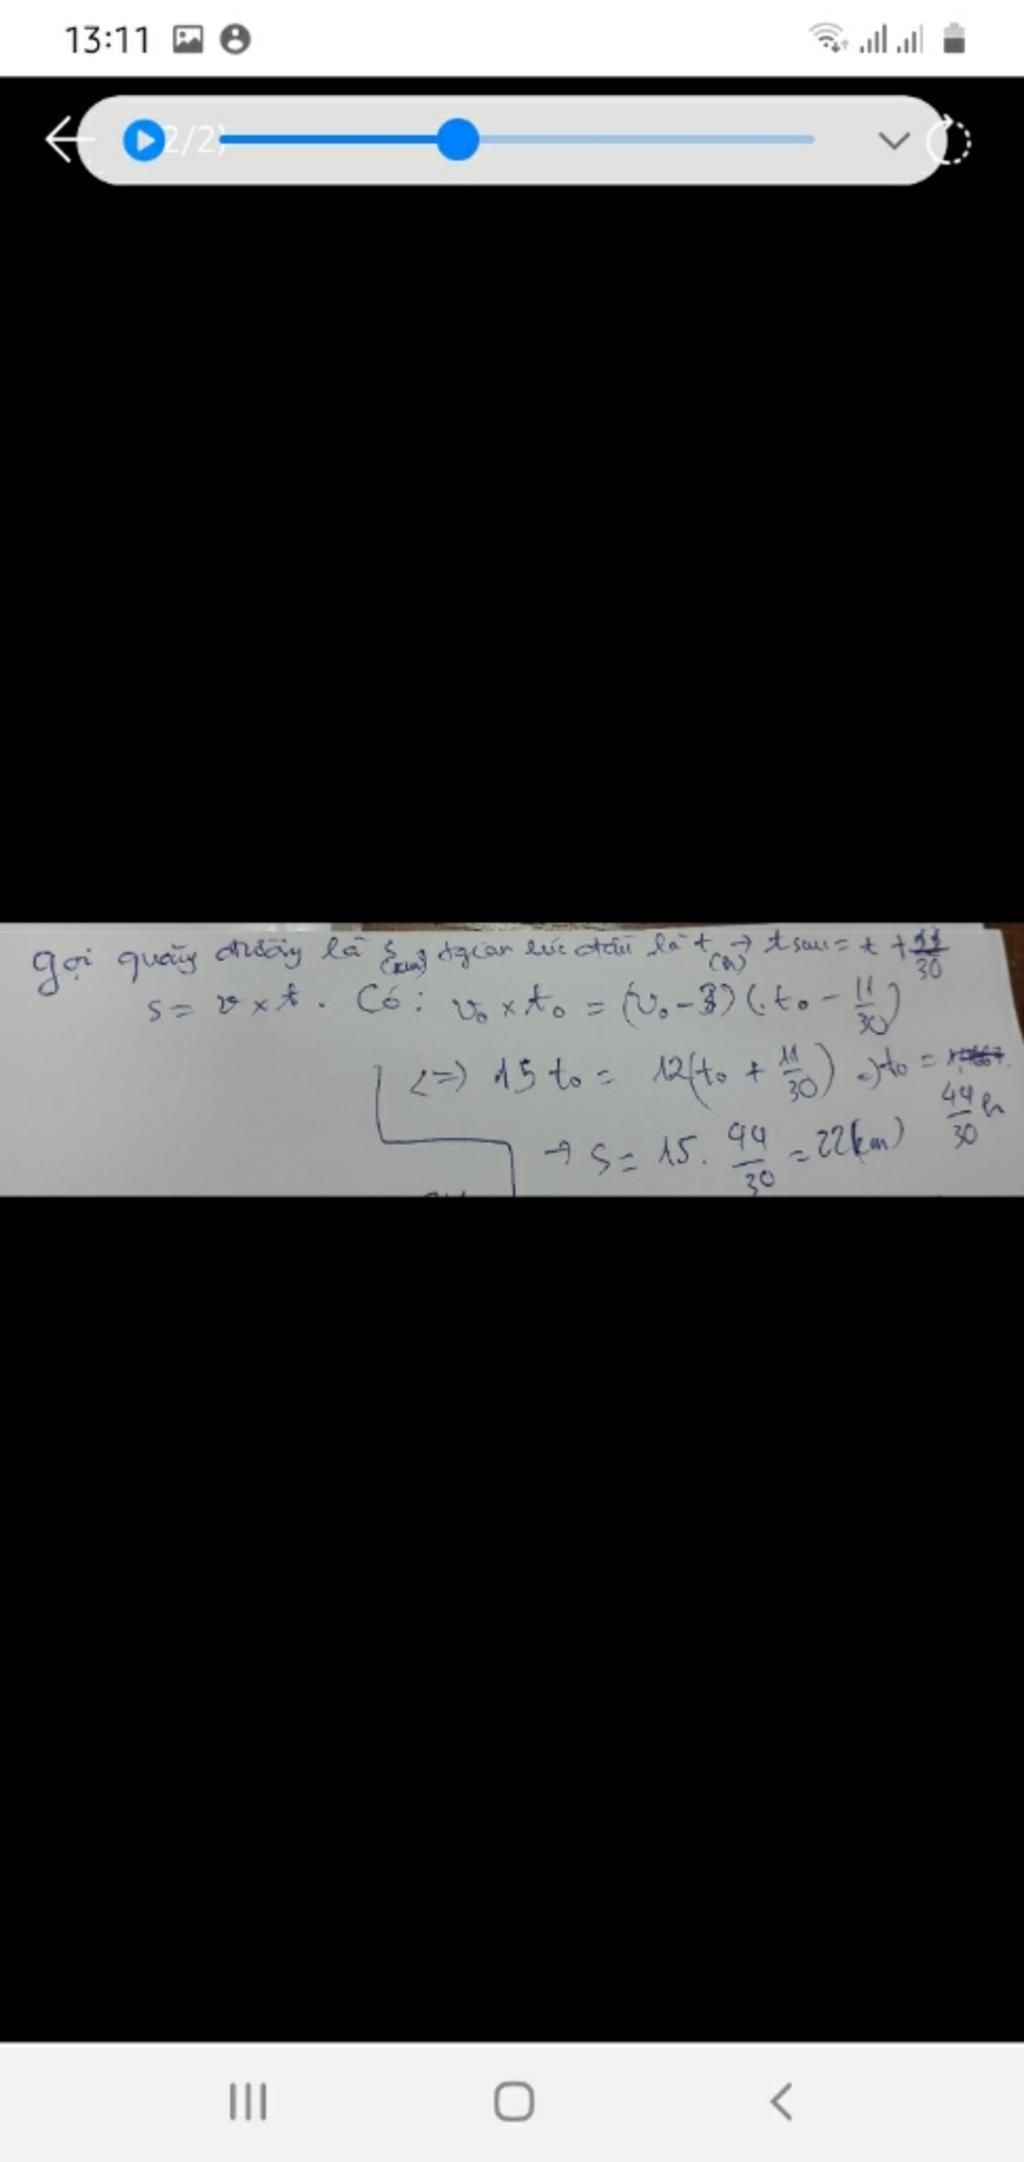 13:11
2/2)
gọi quãng đường là S (km) tgian lúc đầu là t (h) → t sau = t + 11/30
S = v × t . Có : v₀ × t₀ = (v₀ - 3) (t₀ - 11/30)
<=> 15 t₀ = 12(t₀ + 11/30) => t₀ = 44/30 h
→ S = 15. 44/30 = 22(km)